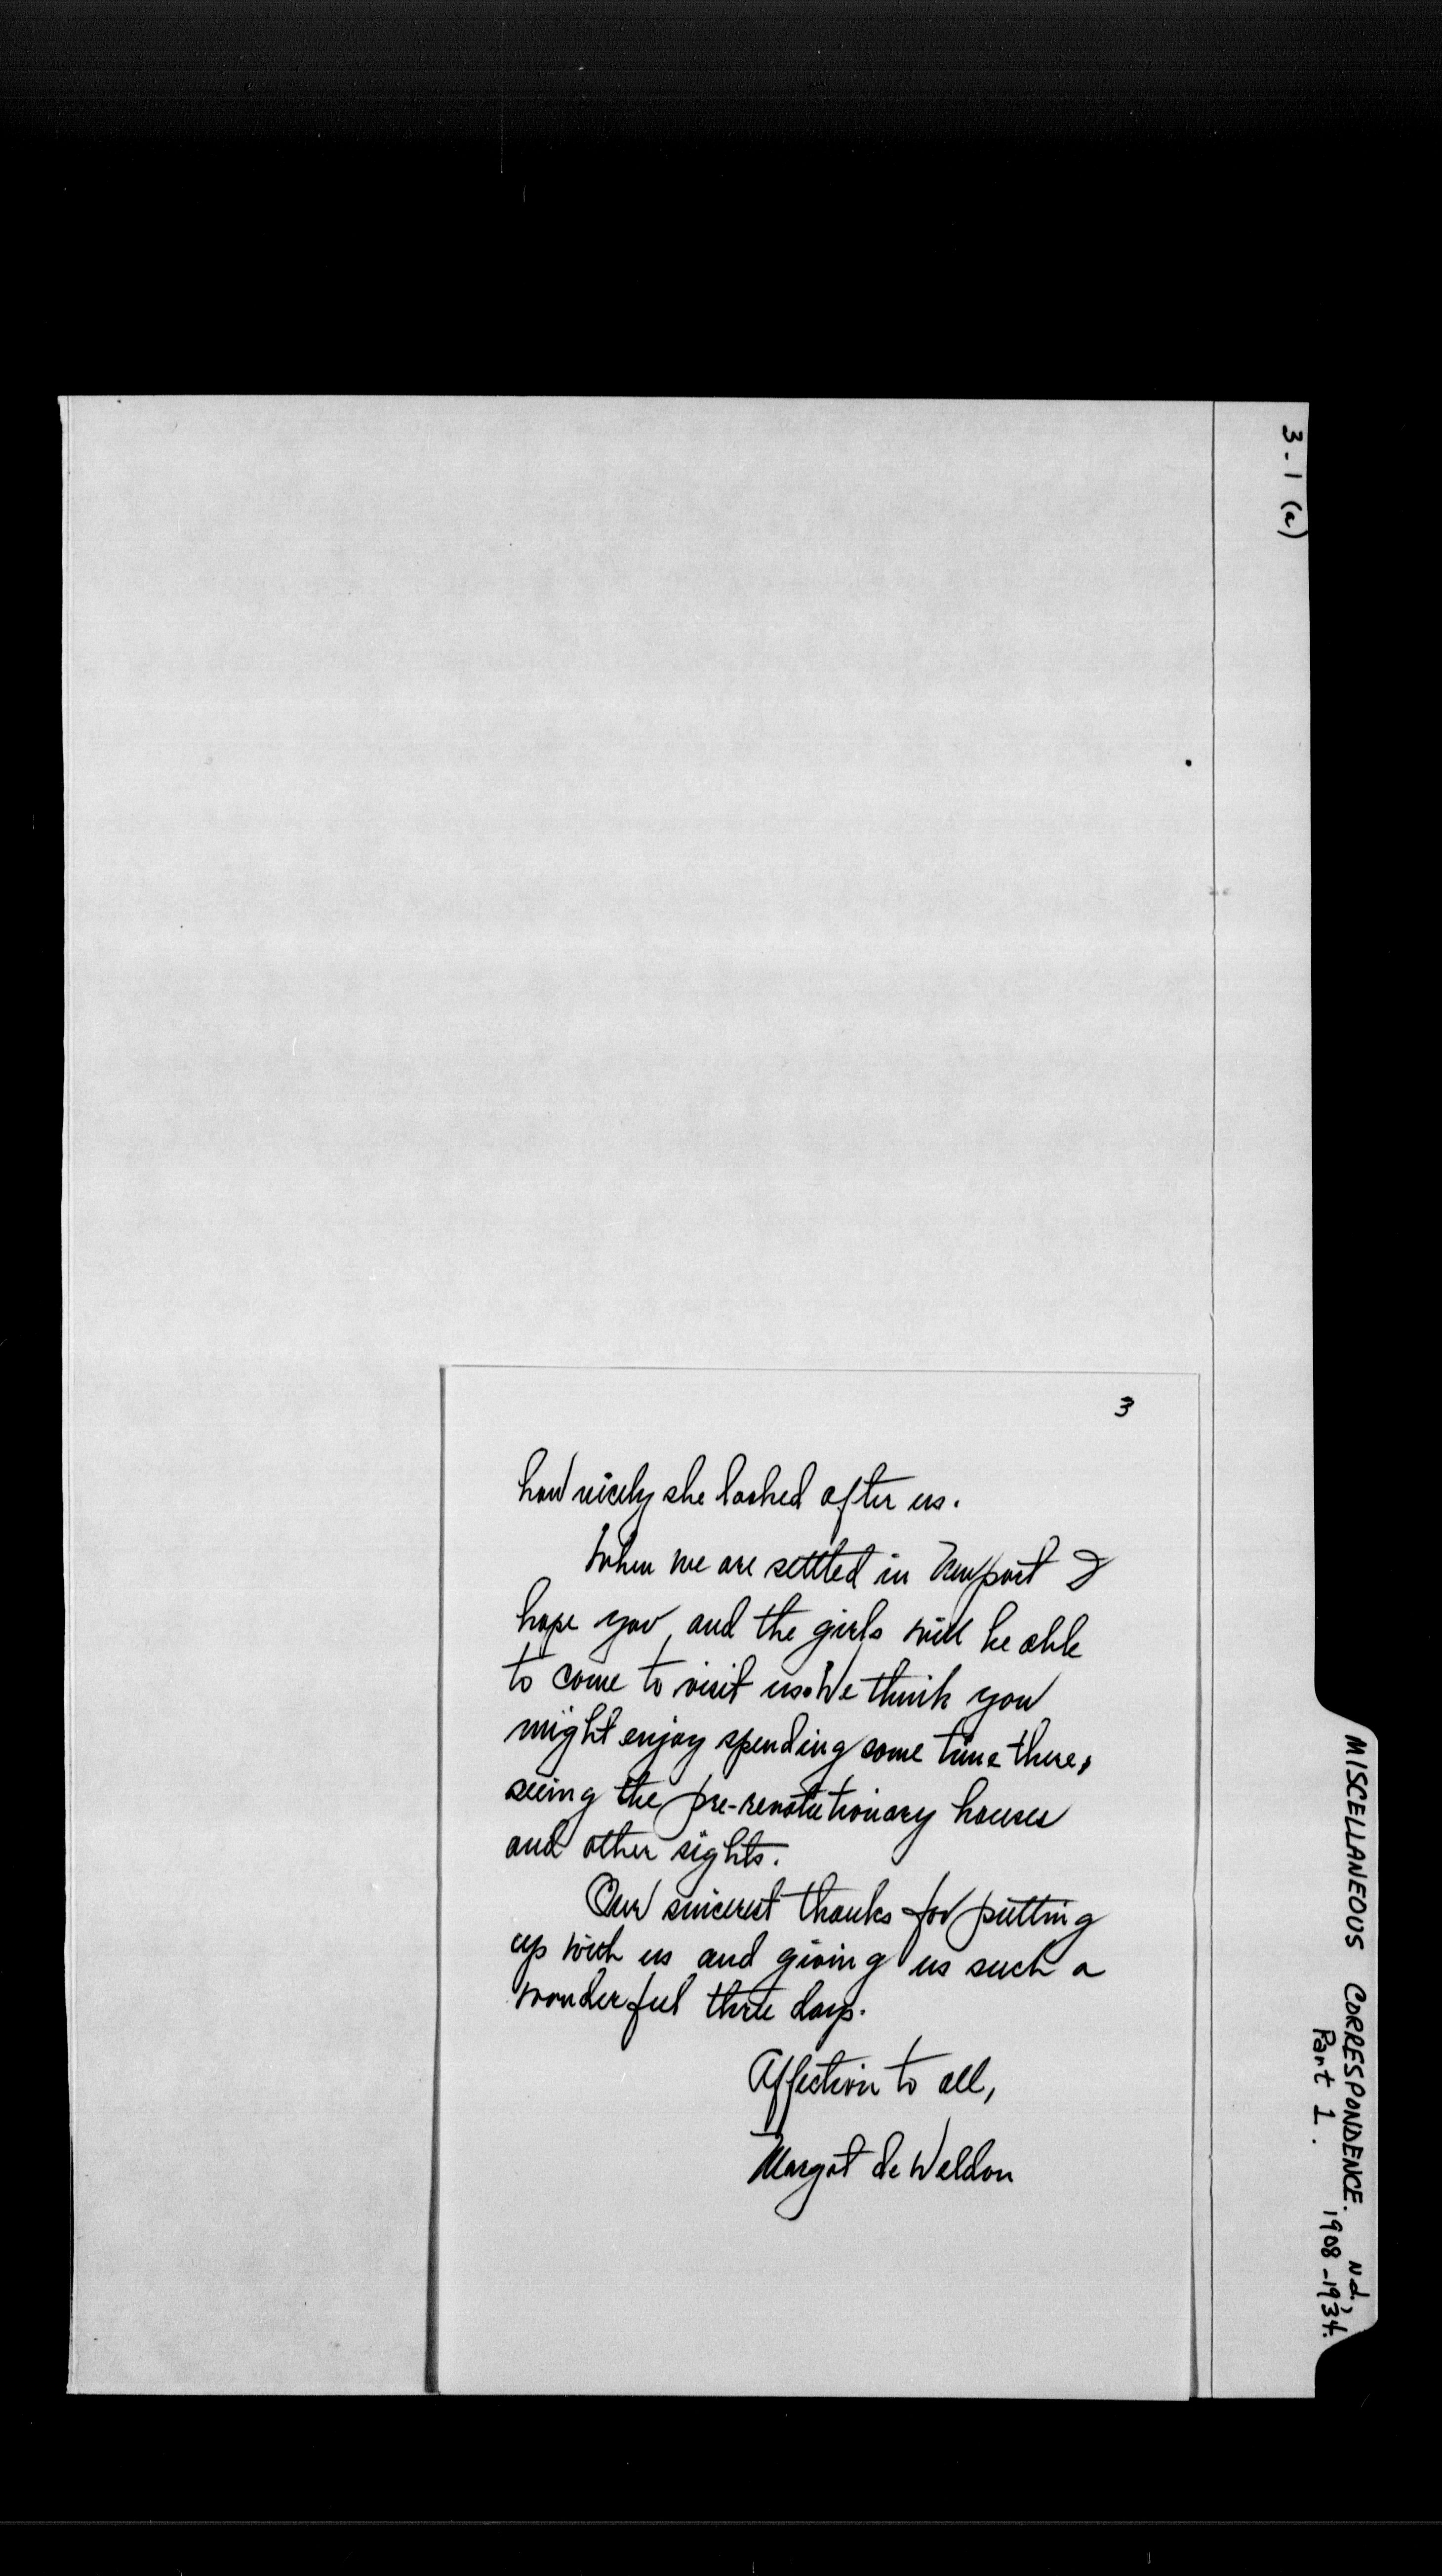 3-1 (a)
MISCELLANEOUS CORRESPONDENCE. N.d.,
Part 1. 1908-1934.
3
how nicely she looked after us.
When we are settled in Newport I
hope you, and the girls will be able
to come to visit us. We think you
might enjoy spending some time there,
seeing the pre-revolutionary houses
and other sights.
Our sincerest thanks for putting
up with us and giving us such a
wonderful three days.
Affection to all,
Margot de Weldon